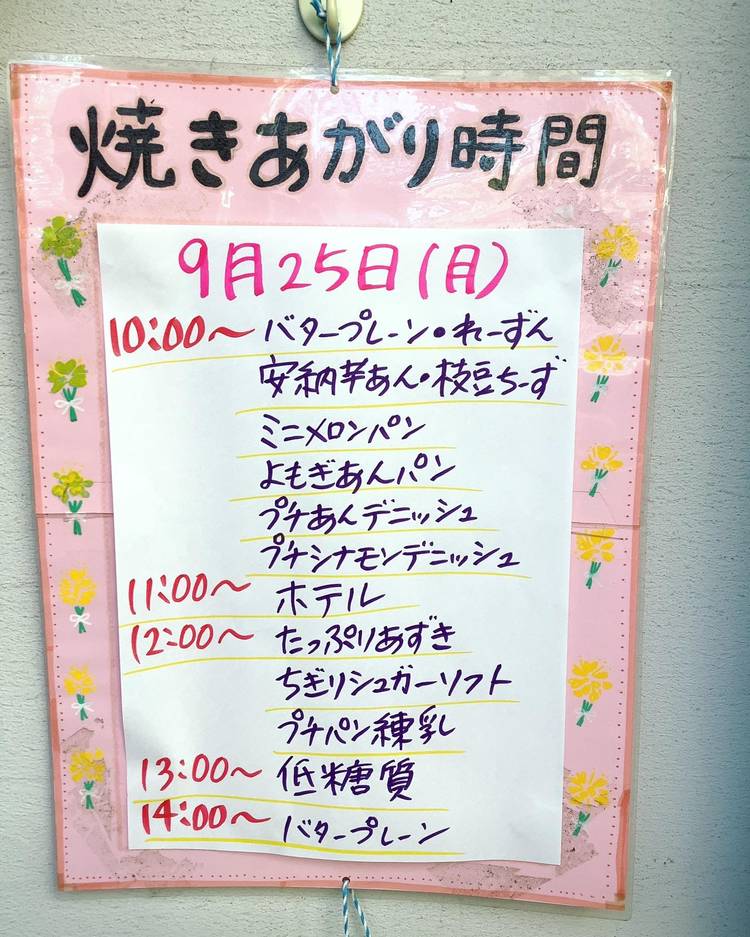 焼きあがり時間
9月25日(月)
10:00～ バタープレーン・れーずん
安納芋あん・枝豆ちーず
ミニメロンパン
よもぎあんパン
プチあんデニッシュ
プチシナモンデニッシュ
11:00～ ホテル
12:00～ たっぷりあずき
ちぎりシュガーソフト
プチパン練乳
13:00～ 低糖質
14:00～ バタープレーン